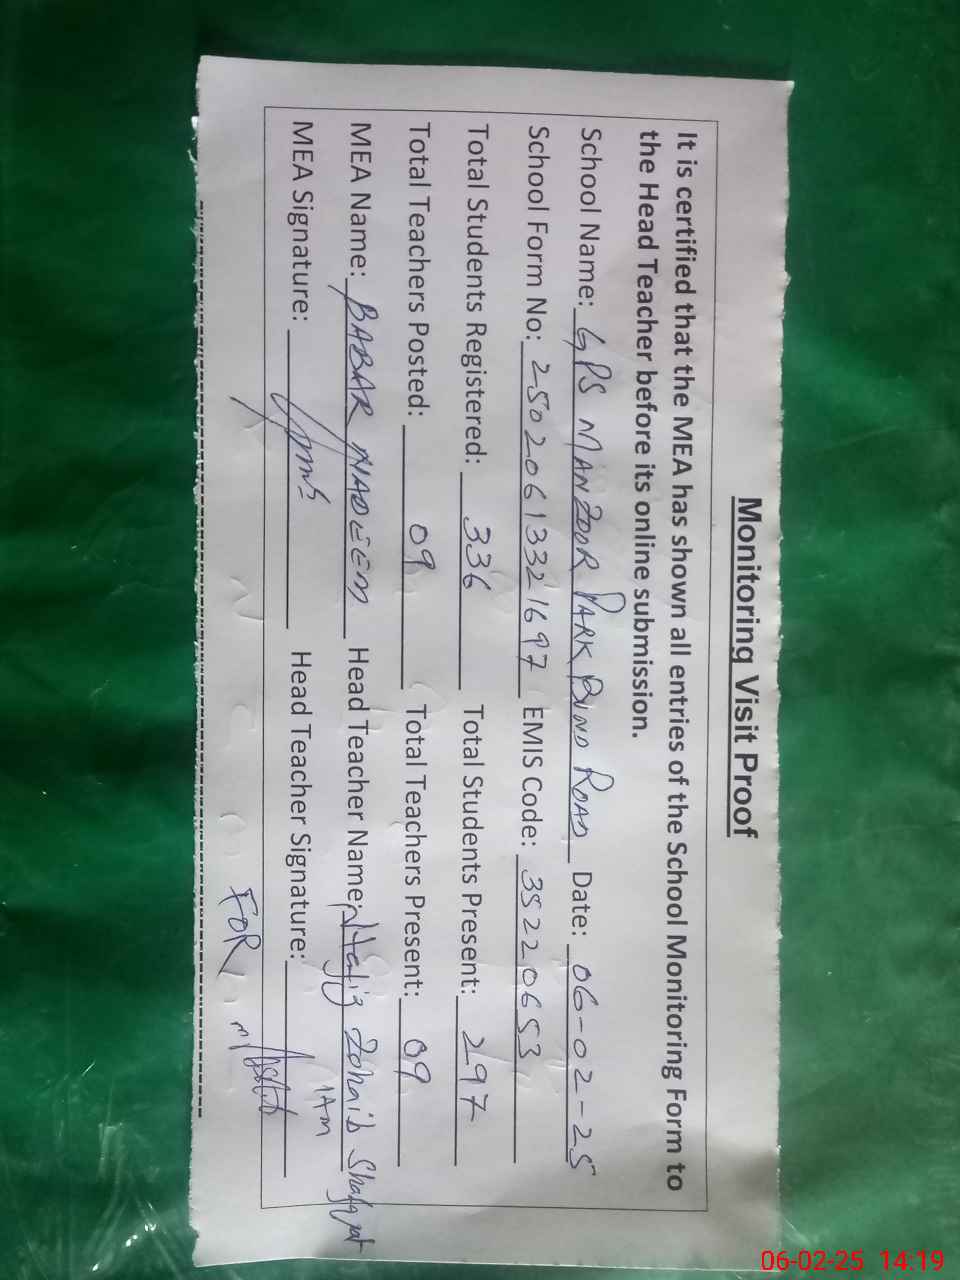 Monitoring Visit Proof
It is certified that the MEA has shown all entries of the School Monitoring Form to
the Head Teacher before its online submission.
School Name: GPS MANZOOR PARK BUND ROAD Date: 06-02-25
School Form No: 25020613321697 EMIS Code: 35220653
Total Students Registered: 336 Total Students Present: 297
Total Teachers Posted: 09 Total Teachers Present: 09
MEA Name: BABAR NADEEM Head Teacher Name: Hafiz Zohaib Shafqat
MEA Signature: Head Teacher Signature:
FOR
06-02-25 14:19